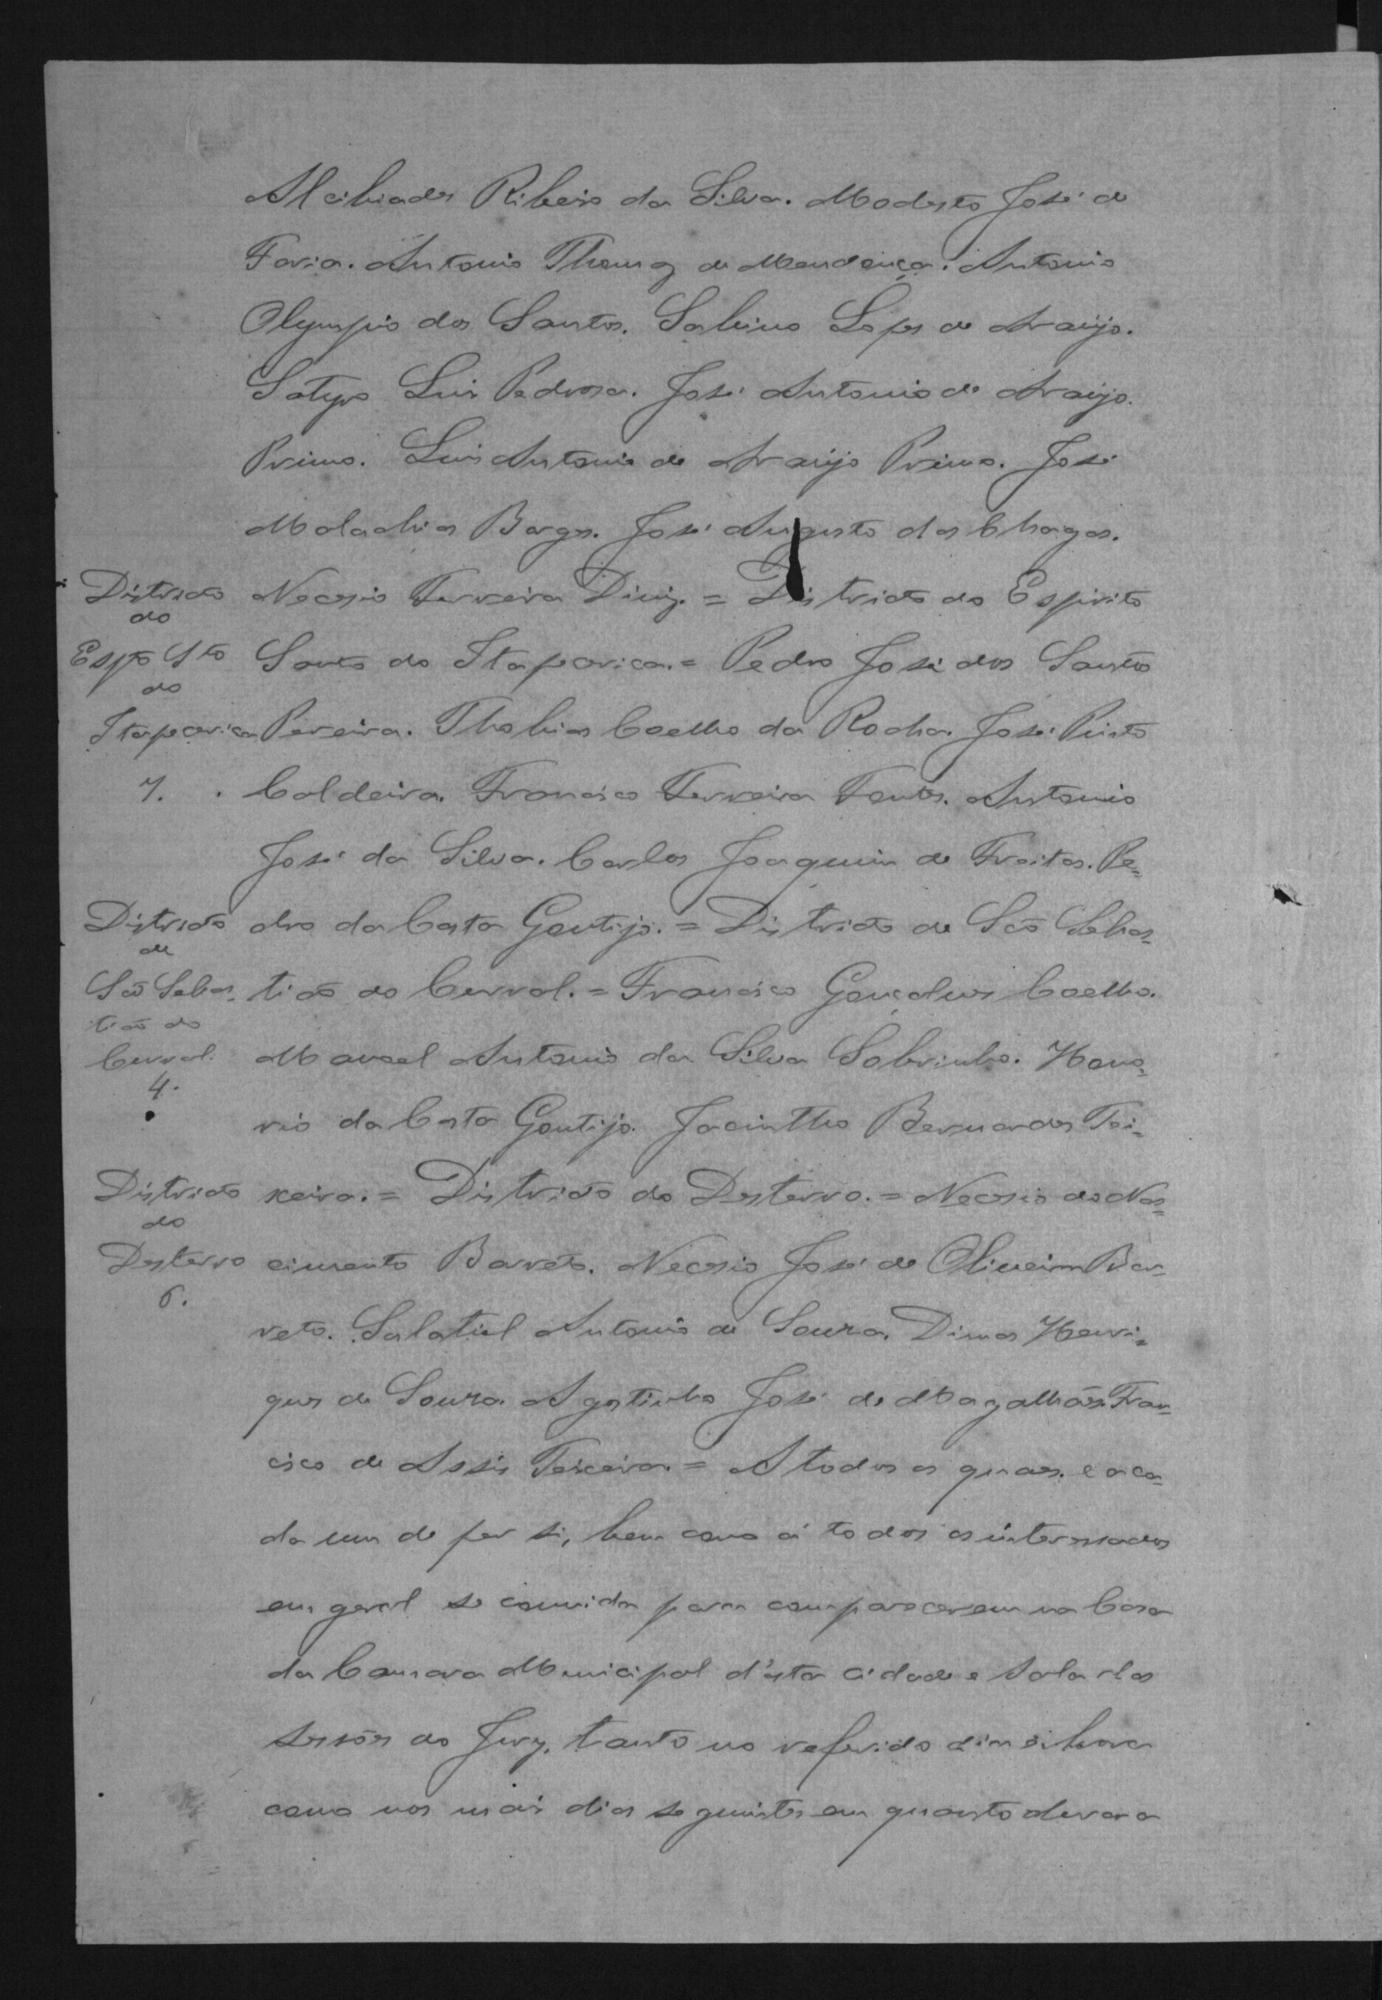 Alcibiades Ribeiro da Silva. Modesto José de
Faria. Antonio Thomaz de Mendonça. Antonio
Olympio dos Santos. Sabino Lopes de Araujo.
Satyro Luis Pedrosa. José Antonio de Araujo
Primo. Luis Antonio de Araujo Primo. José
Malachias Borges. José Augusto das Chagas.
Districto
do
Espto Sto
do
Itapecerica
7.
Necesio Ferreira Diniz. = Districto do Espirito
Santo do Itapecerica. = Pedro José dos Santos
Pereira. Thobias Coelho da Rocha. José Pinto
Caldeira. Francisco Ferreira Fontes. Antonio
José da Silva. Carlos Joaquim de Freitas. Pe=
Districto
de
São Sebas=
tião do
Curral.
4.
dro da Costa Gontijo. = Districto de São Sebas=
tião do Curral. = Francisco Gonçalves Coelho.
Manoel Antonio da Silva Sobrinho. Hono=
rio da Costa Gontijo. Jacintho Bernardes Tei=
Districto
do
Desterro
6.
xeira. = Districto do Desterro. = Necesio do Nas=
cimento Barreto. Necesio José de Oliveira Bar=
reto. Salatiel Antonio de Souza. Dimas Henri=
ques de Souza. Agostinho José de Magalhães. Fran=
cisco de Assis Teixeira. = A todos os quaes. e a ca=
da um de per si, bem como á todos os interessados
em geral se convida para comparecerem na Casa
da Camara Municipal d'esta cidade e sala das
sesões do Jury, tanto no referido dia e hora
como nos mais dias seguintes em quanto durar a